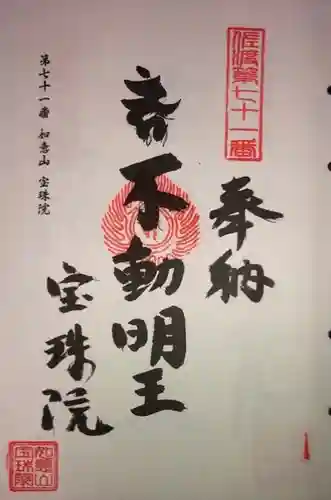 佐渡第七十一番
奉納
不動明王
宝珠院
第七十一番 如意山 宝珠院
如意山
宝珠院